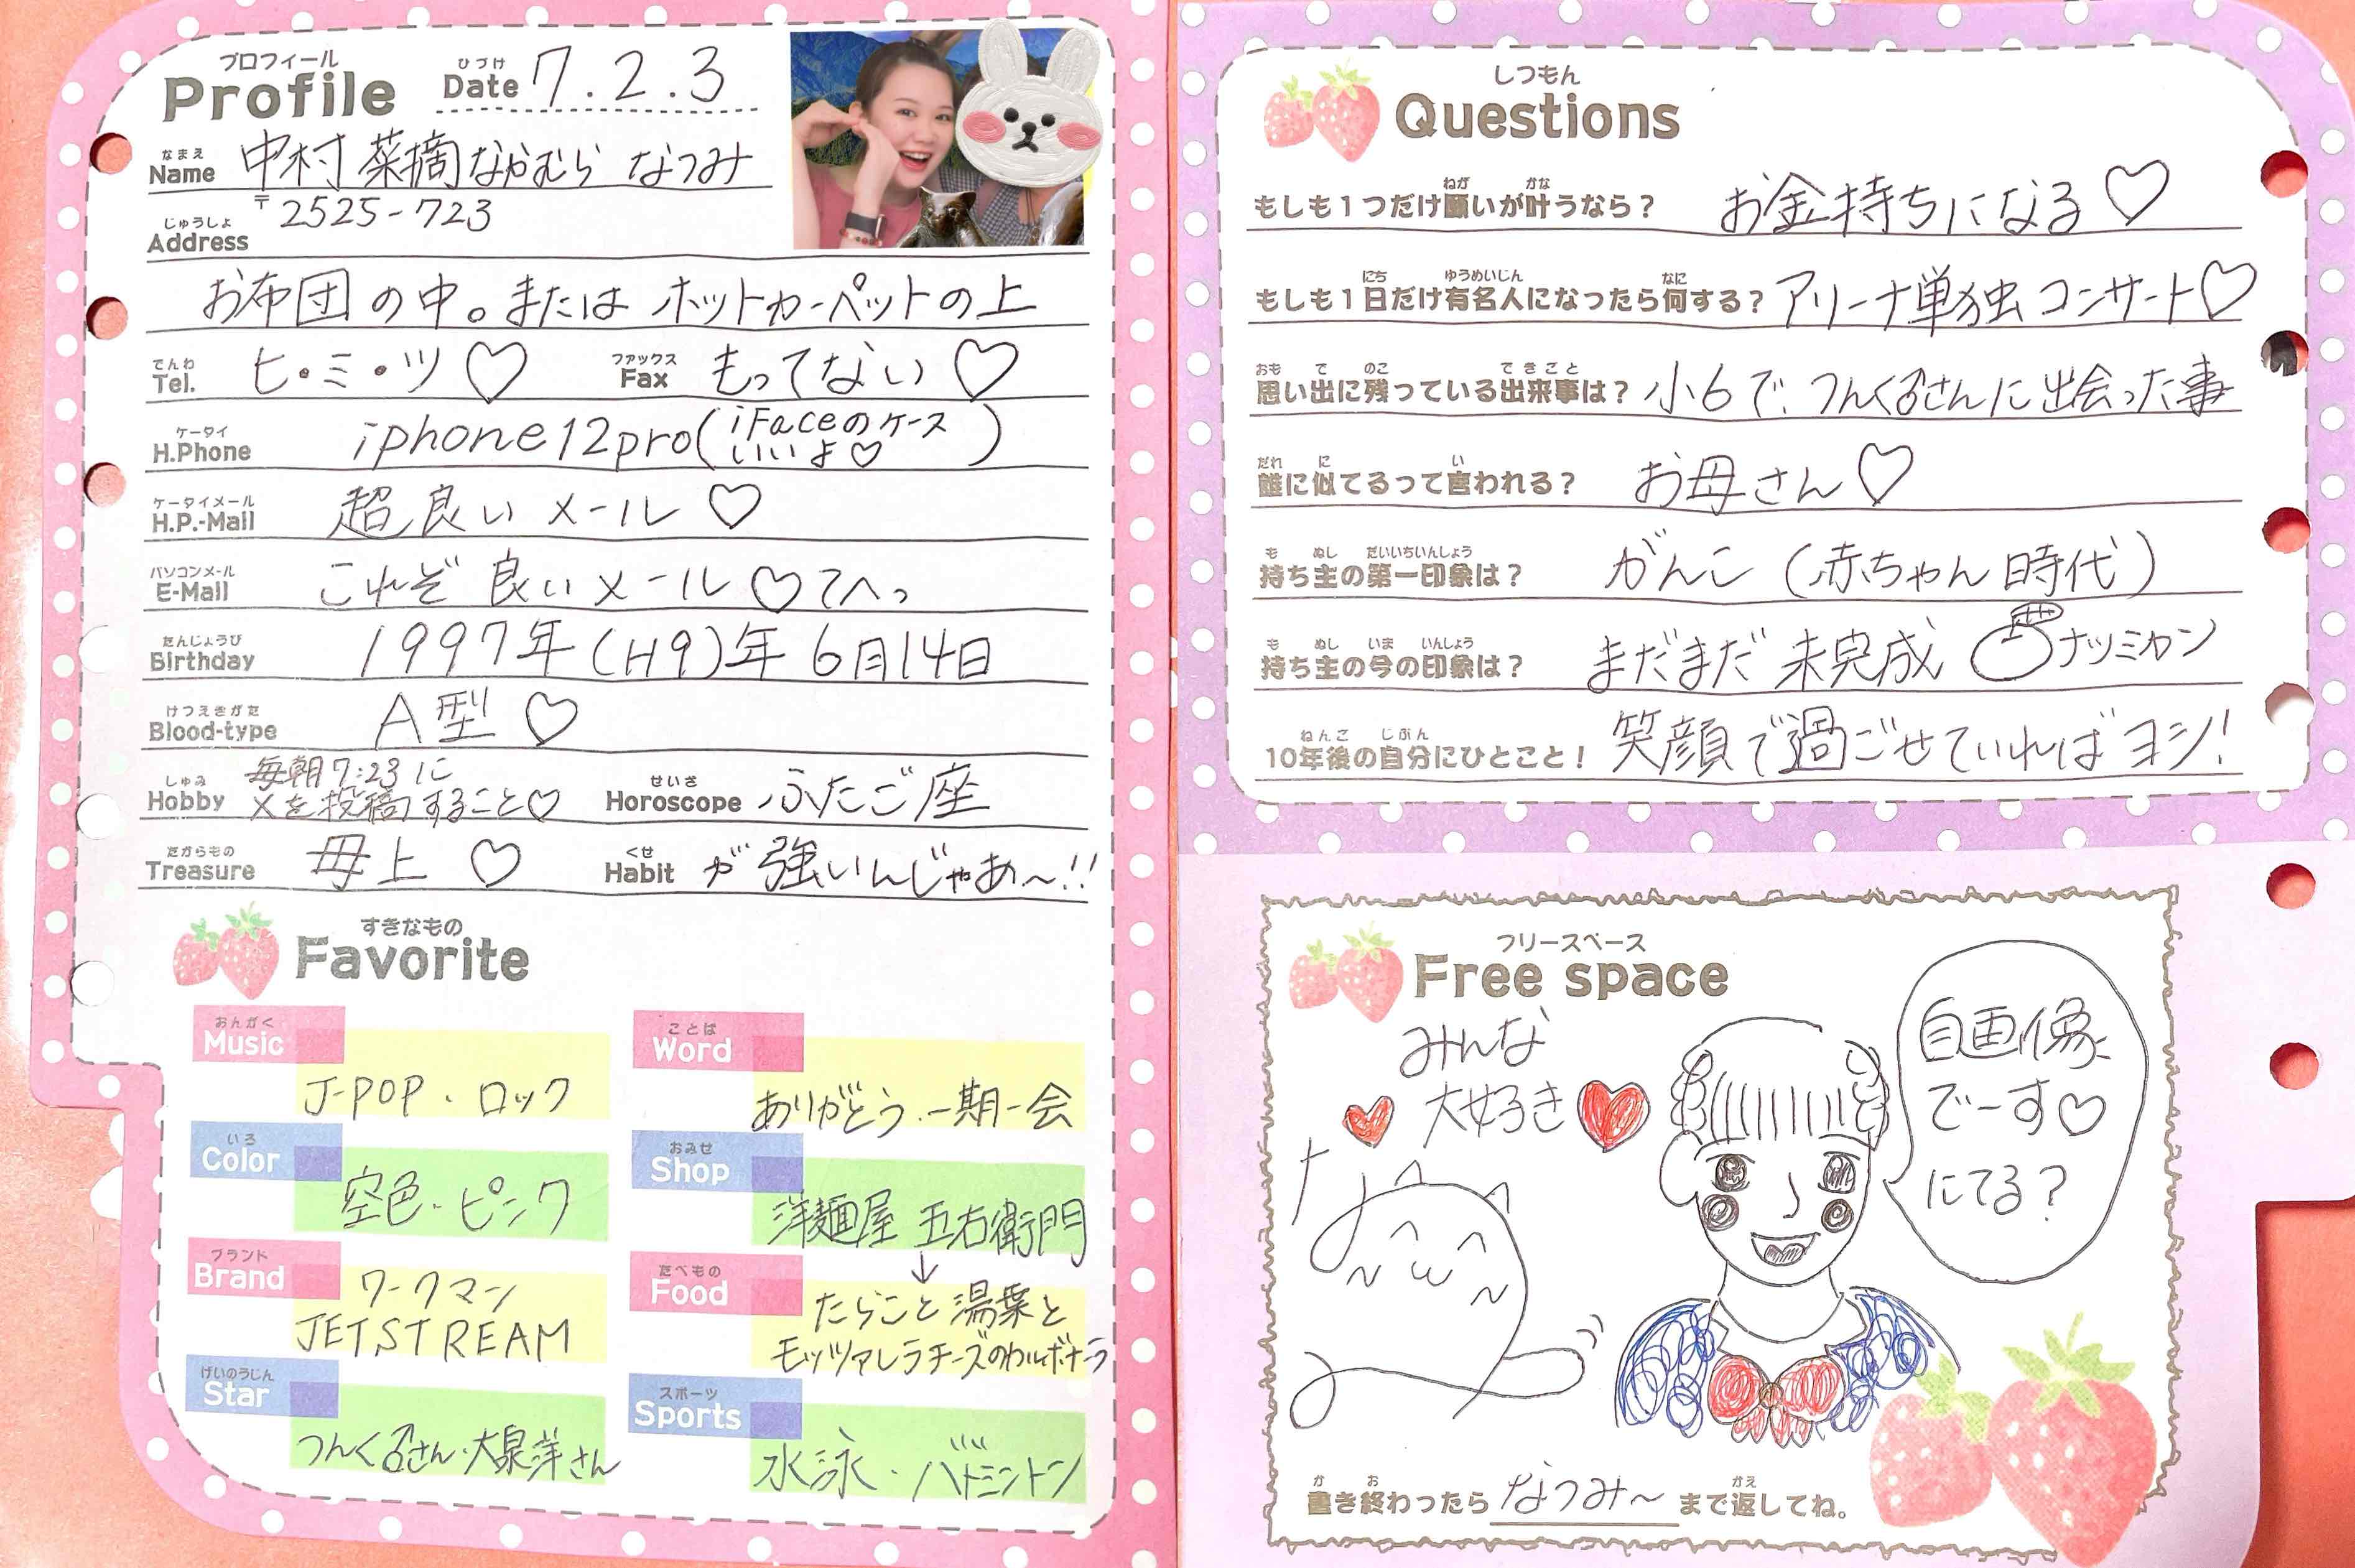 プロフィール
Profile
ひづけ
Date 7.2.3
なまえ
Name 中村 菜摘 なかむら なつみ
じゅうしょ
Address 〒2525-723
お布団の中。または ホットカーペットの上
でんわ
Tel. ヒ・ミ・ツ♡
ファックス
Fax もってない♡
ケータイ
H.Phone iphone12pro(iFaceのケース
いいよ♡)
ケータイメール
H.P.-Mail 超良いメール♡
パソコンメール
E-Mail これぞ 良いメール♡てへっ
たんじょうび
Birthday 1997年(H9)年 6月14日
けつえきがた
Blood-type A型♡
しゅみ
Hobby 毎朝7:23に
Xを投稿すること♡
せいざ
Horoscope ふたご座
たからもの
Treasure 母上♡
くせ
Habit が強いんじゃあ〜!!
すきなもの
Favorite
おんがく
Music
J-POP・ロック
ことば
Word
ありがとう・一期一会
いろ
Color
空色・ピンク
おみせ
Shop
洋麺屋 五右衛門
↓
ブランド
Brand
ワークマン
JETSTREAM
たべもの
Food
たらこと湯葉と
モッツァレラチーズのカルボナーラ
げいのうじん
Star
つんく♂さん・大泉洋さん
スポーツ
Sports
水泳・バドミントン
しつもん
Questions
ねが かな
もしも1つだけ願いが叶うなら? お金持ちになる♡
にち ゆうめいじん なに
もしも1日だけ有名人になったら何する? アリーナ単独コンサート♡
おも で のこ できごと
思い出に残っている出来事は? 小6で、つんく♂さんに出会った事
だれ に い
誰に似てるって言われる? お母さん♡
も ぬし だいいちいんしょう
持ち主の第一印象は? がんこ(赤ちゃん時代)
も ぬし いま いんしょう
持ち主の今の印象は? まだまだ未完成 ナツミカン
ねんご じぶん
10年後の自分にひとこと! 笑顔で過ごせていればヨシ!
フリースペース
Free space
みんな
大好き
自画像
でーす♡
にてる?
な
つ
み
か お かえ
書き終わったら なつみ〜 まで返してね。